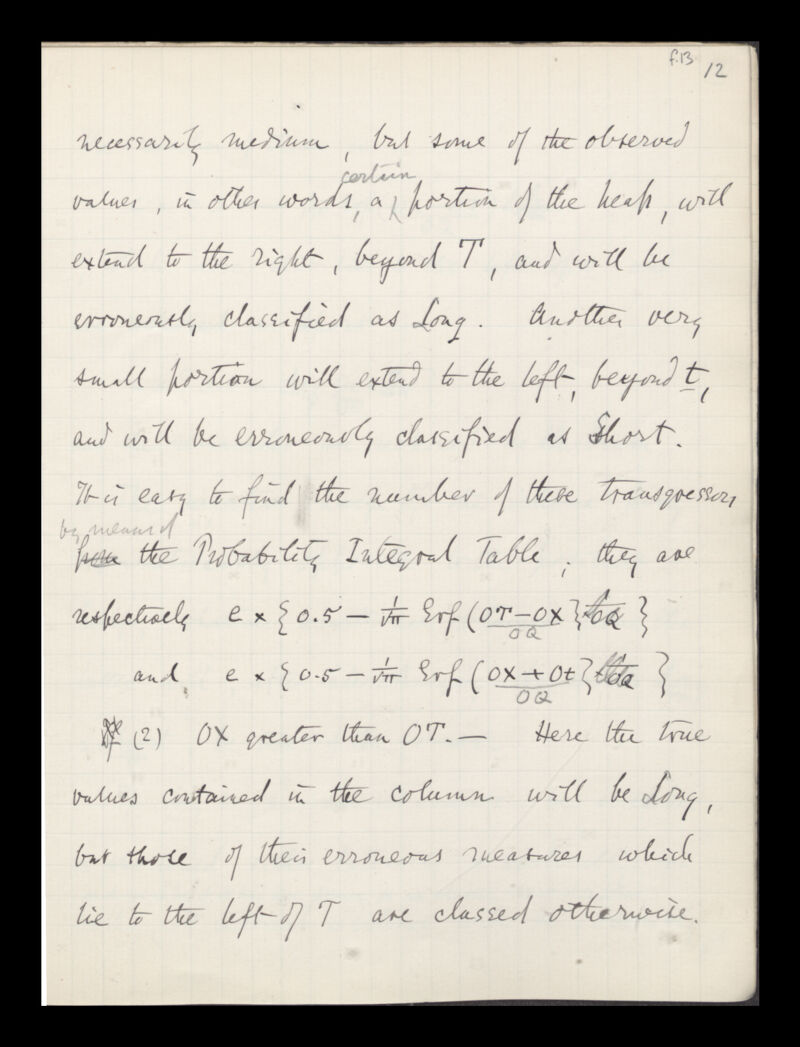 f.13 12
necessarily medium, but some of the observed
certain
values, in other words, a portion of the heap, will
extend to the right, beyond T, and will be
erroneously classified as Long. Another very
small portion will extend to the left, beyond t,
and will be erroneously classified as Short.
It is easy to find the number of these transgressors
by means of
from the Probability Integral Table; they are
respectively e × {0.5 – 1/√π Erf (OT – OX / OQ} }
and e × {0.5 – 1/√π Erf (OX + Ot / OQ} }
(2) OX greater than OT. — Here the true
values contained in the column will be Long,
but those of their erroneous measures which
lie to the left of T are classed otherwise.